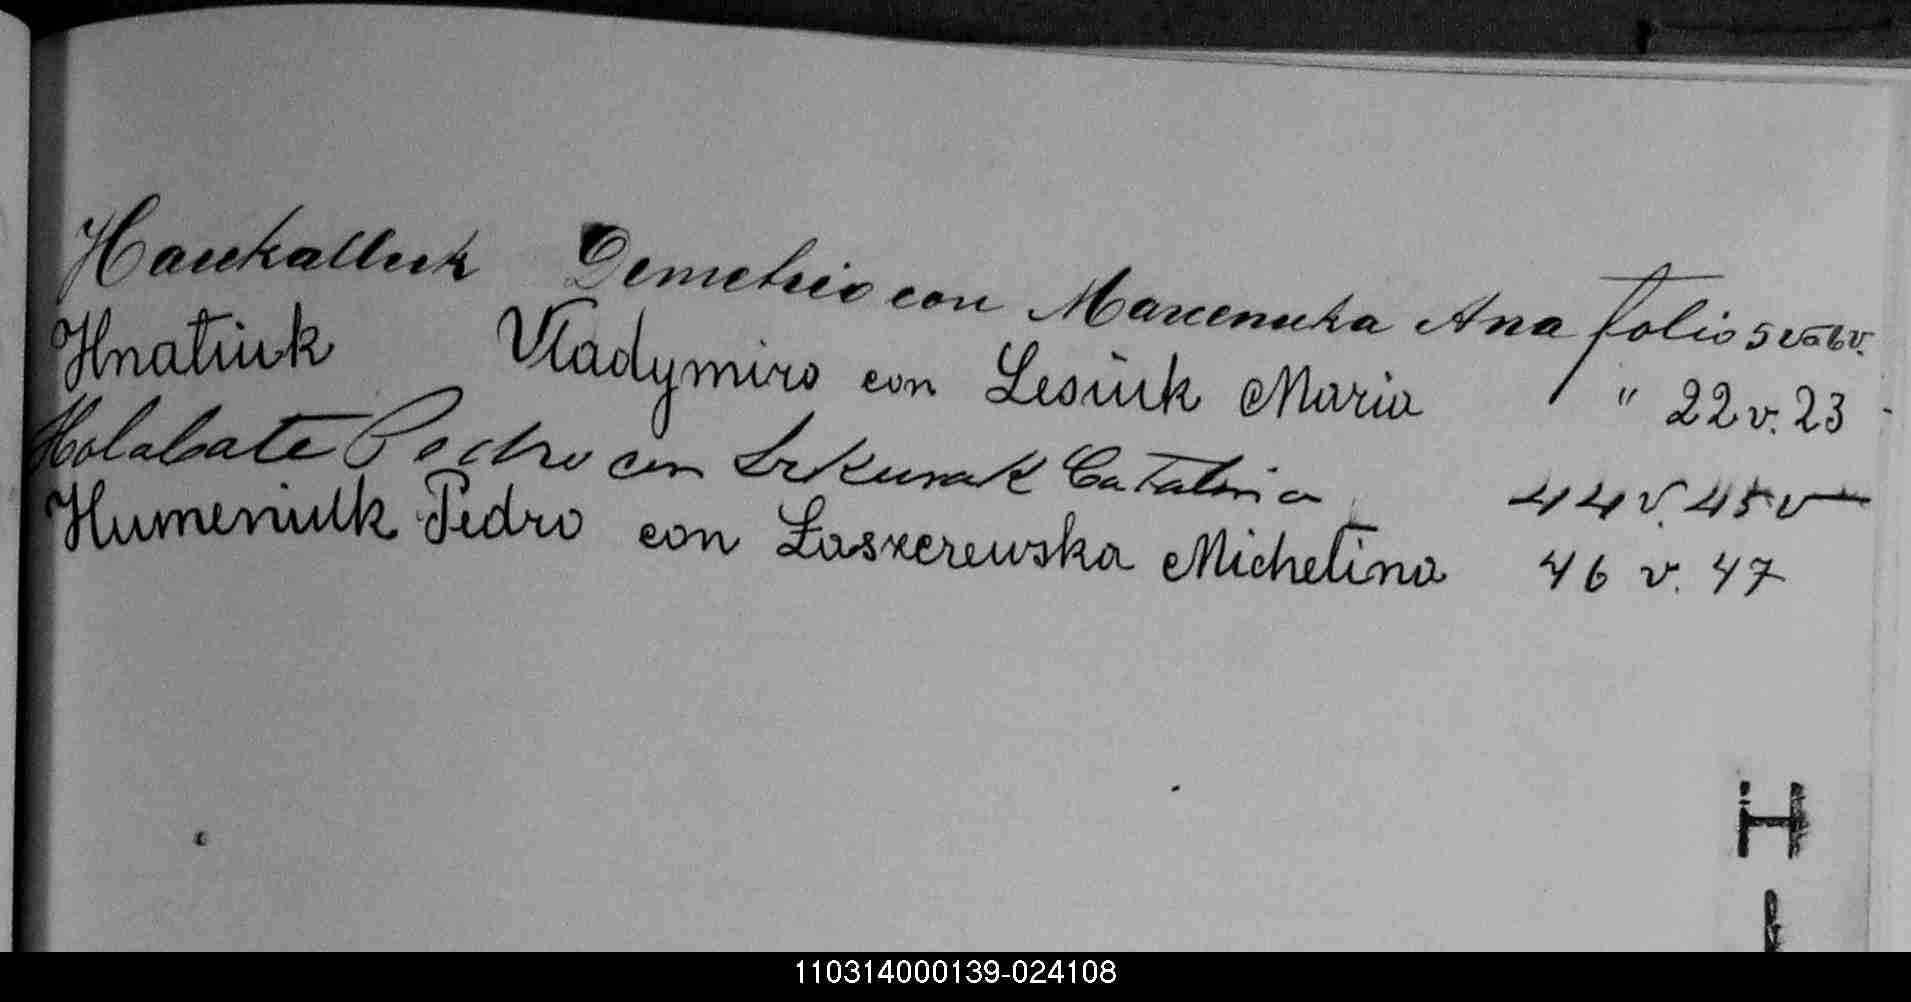 Haukalluk Demetrio con Marcenuka Ana folio 5 v a 6 v.
Hnatiuk Vladymiro con Lesiuk Maria " 22 v. 23
Holabate Pedro con Catalina 44 v. 45 v
Humeniulk Pedro con Laszcrewska Michelina 46 v. 47
H
I
110314000139-024108